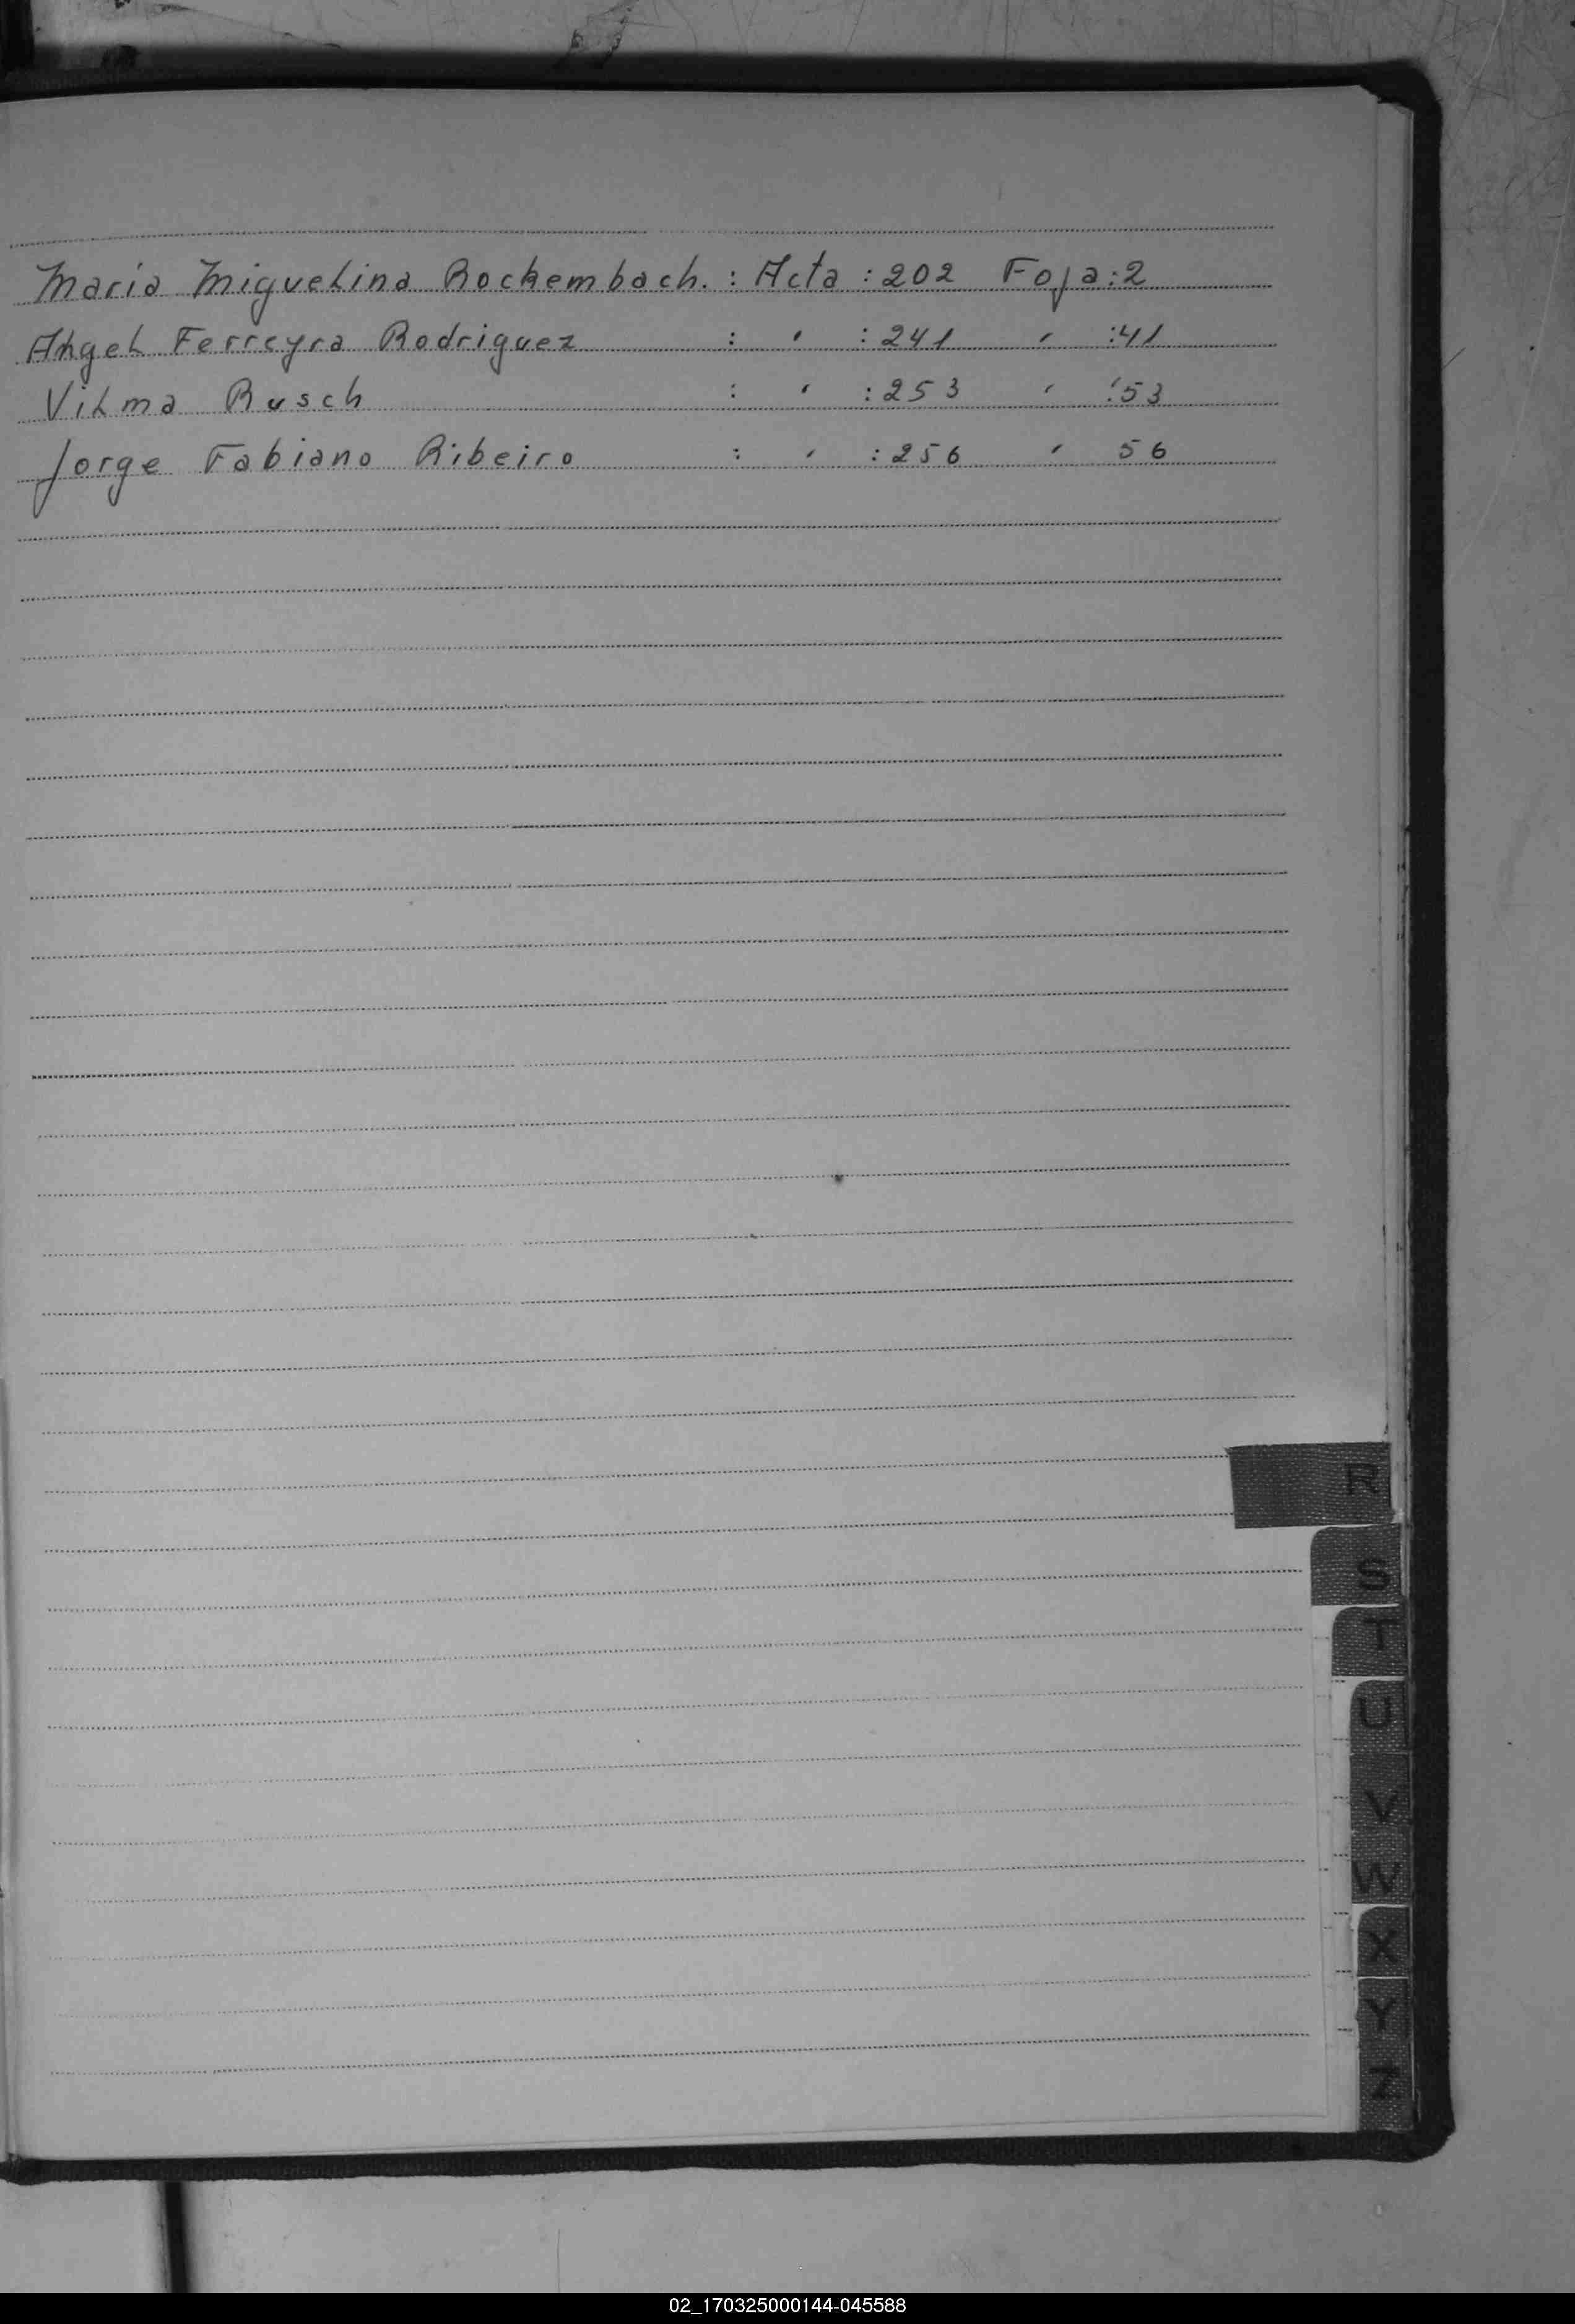 Maria Miguelina Rockembach. : Acta : 202 Foja : 2
Angel Ferreyra Rodriguez : " : 241 " : 41
Vilma Rusch : " : 253 " : 53
Jorge Fabiano Ribeiro : " : 256 " 56
R
S
T
U
V
W
X
Y
Z
02_170325000144-045588